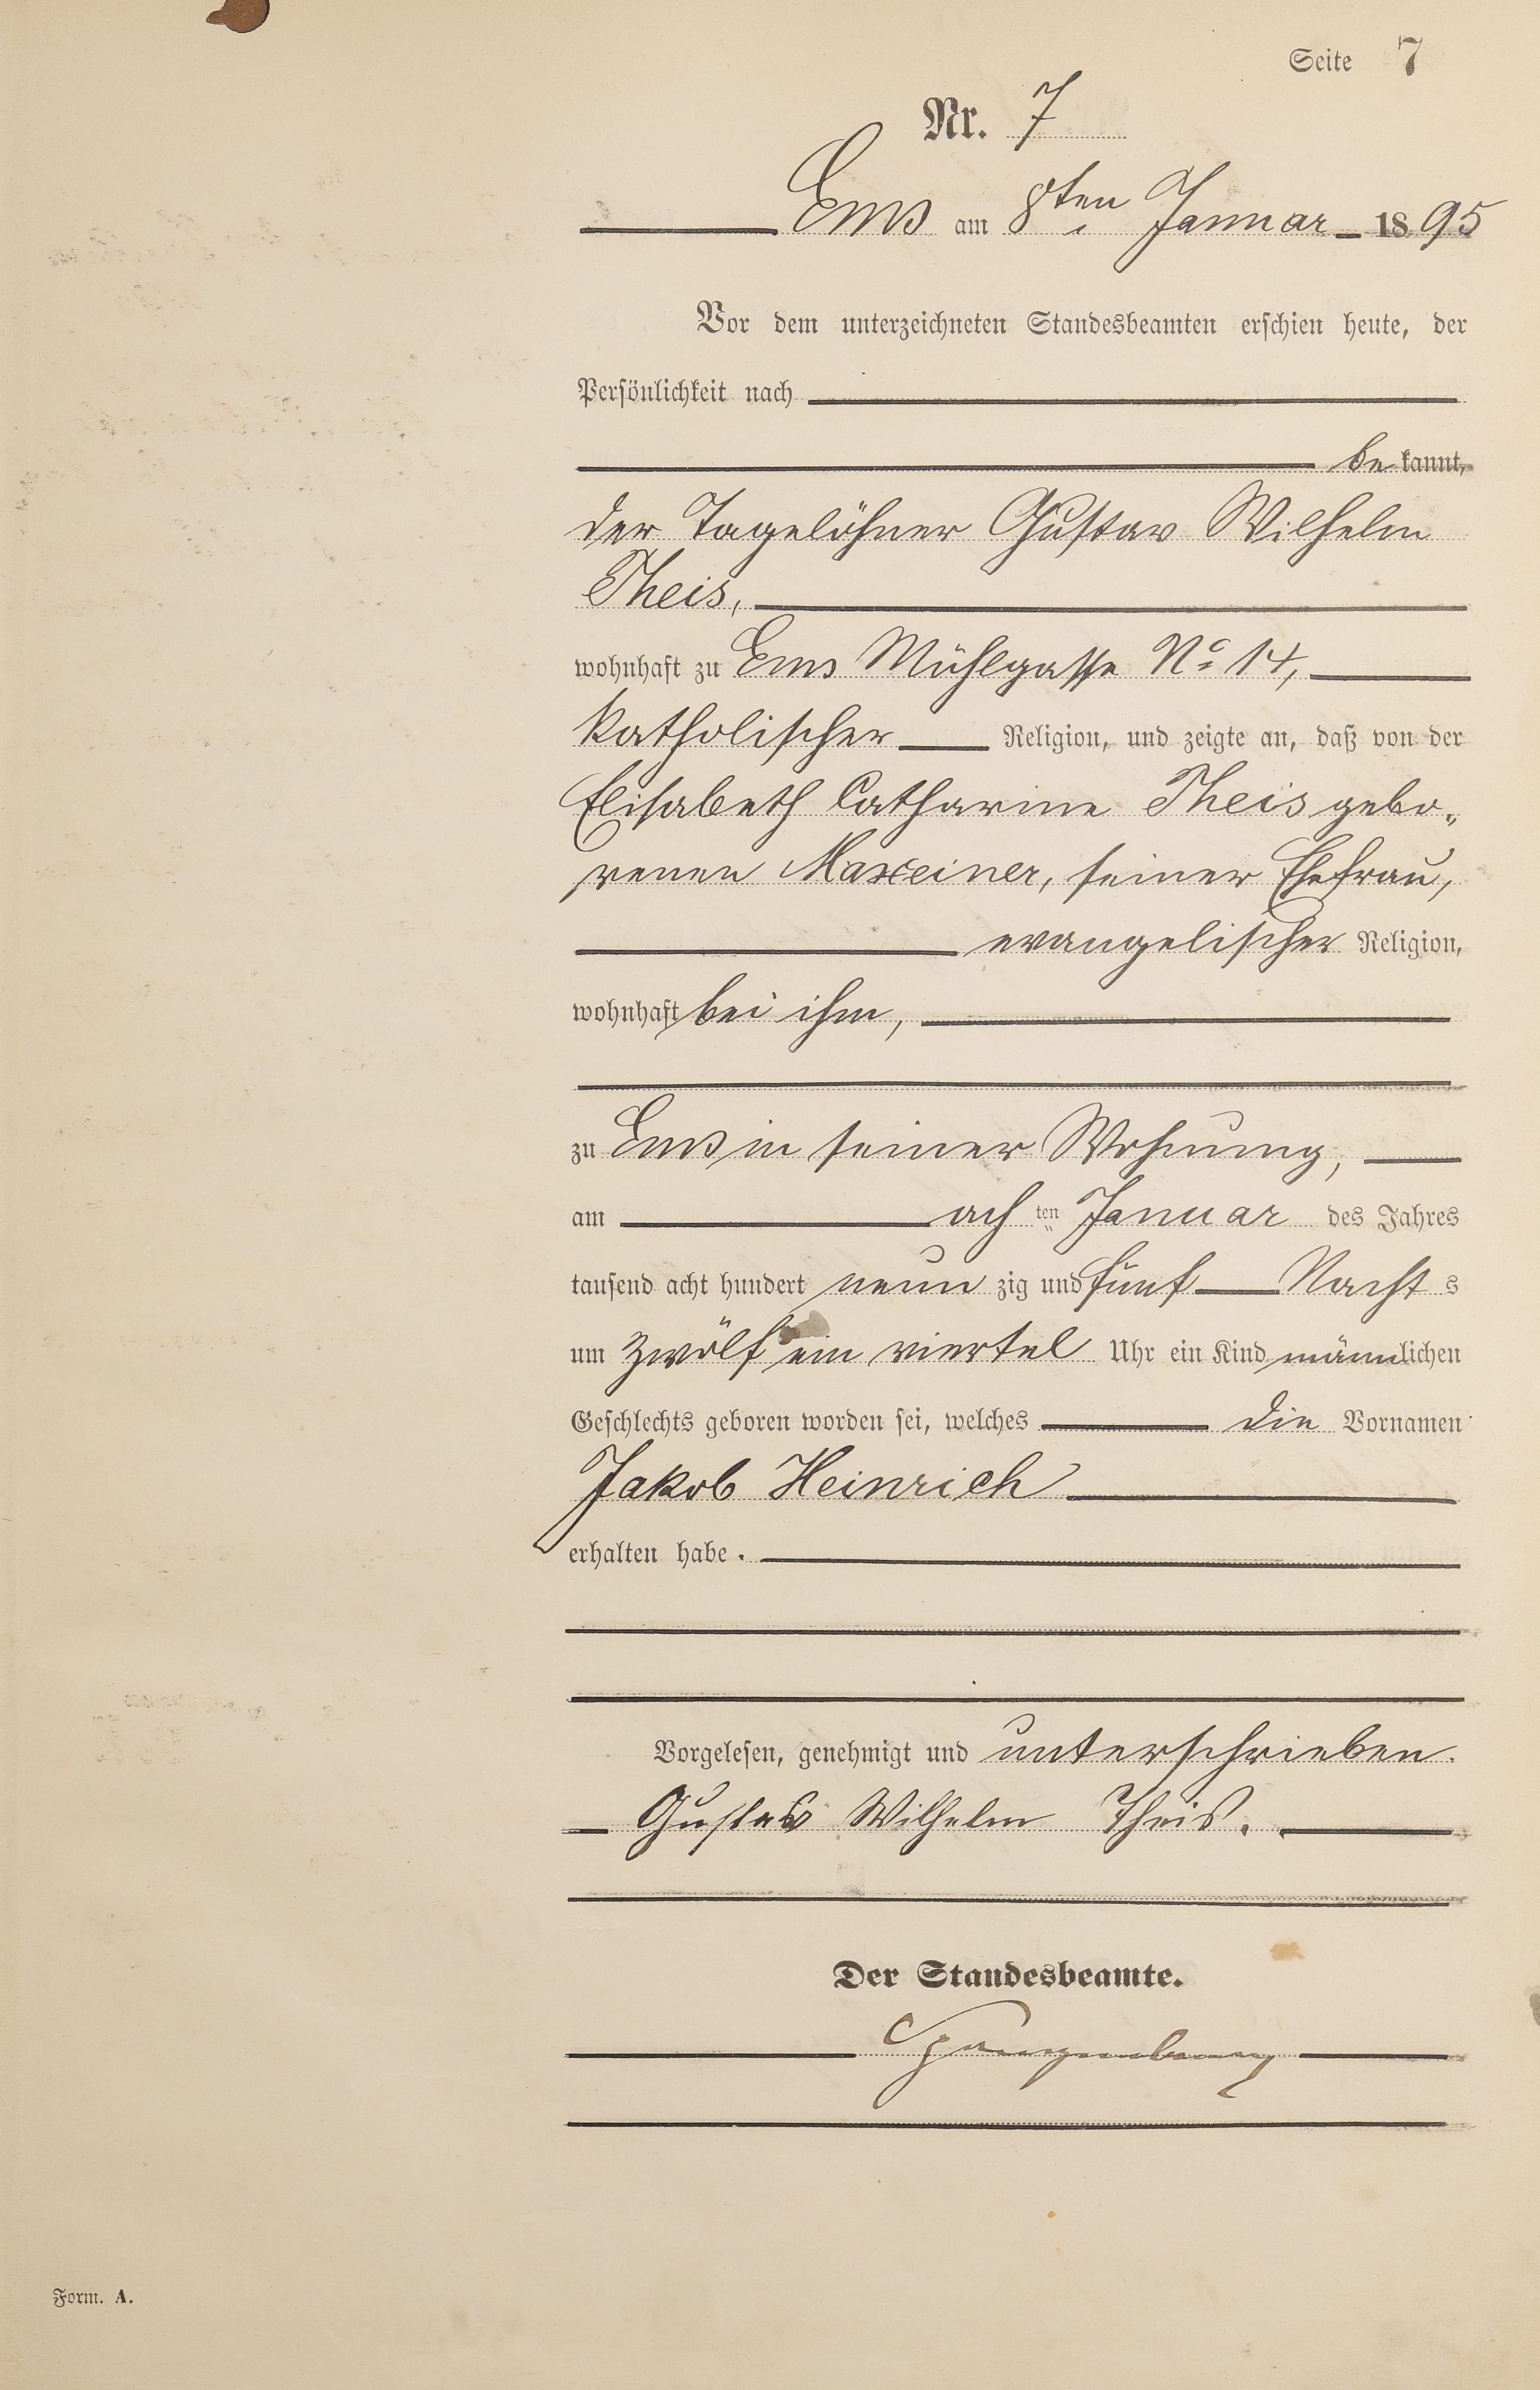 Seite 7
Nr. 7
Ems am 8ten Januar 1895
Vor dem unterzeichneten Standesbeamten erschien heute, der
Persönlichkeit nach
be kannt,
der Tagelöhner Gustav Wilhelm
Theis,
wohnhaft zu Ems Mühlgasse No 14,
katholischer Religion, und zeigte an, daß von der
Elisabeth Catharine Theis gebo„
renen Maxeiner, seiner Ehefrau,
evangelischer Religion,
wohnhaft bei ihm,
zu Ems in seiner Wohnung,
am ach ten Januar des Jahres
tausend acht hundert neun zig und fünf Nacht s
um zwölf ein viertel Uhr ein Kind männlichen
Geschlechts geboren worden sei, welches die Vornamen
Jakob Heinrich
erhalten habe.
Vorgelesen, genehmigt und unterschrieben.
Gustav Wilhelm Theis.
Der Standesbeamte.
Spangenberg
Form. A.